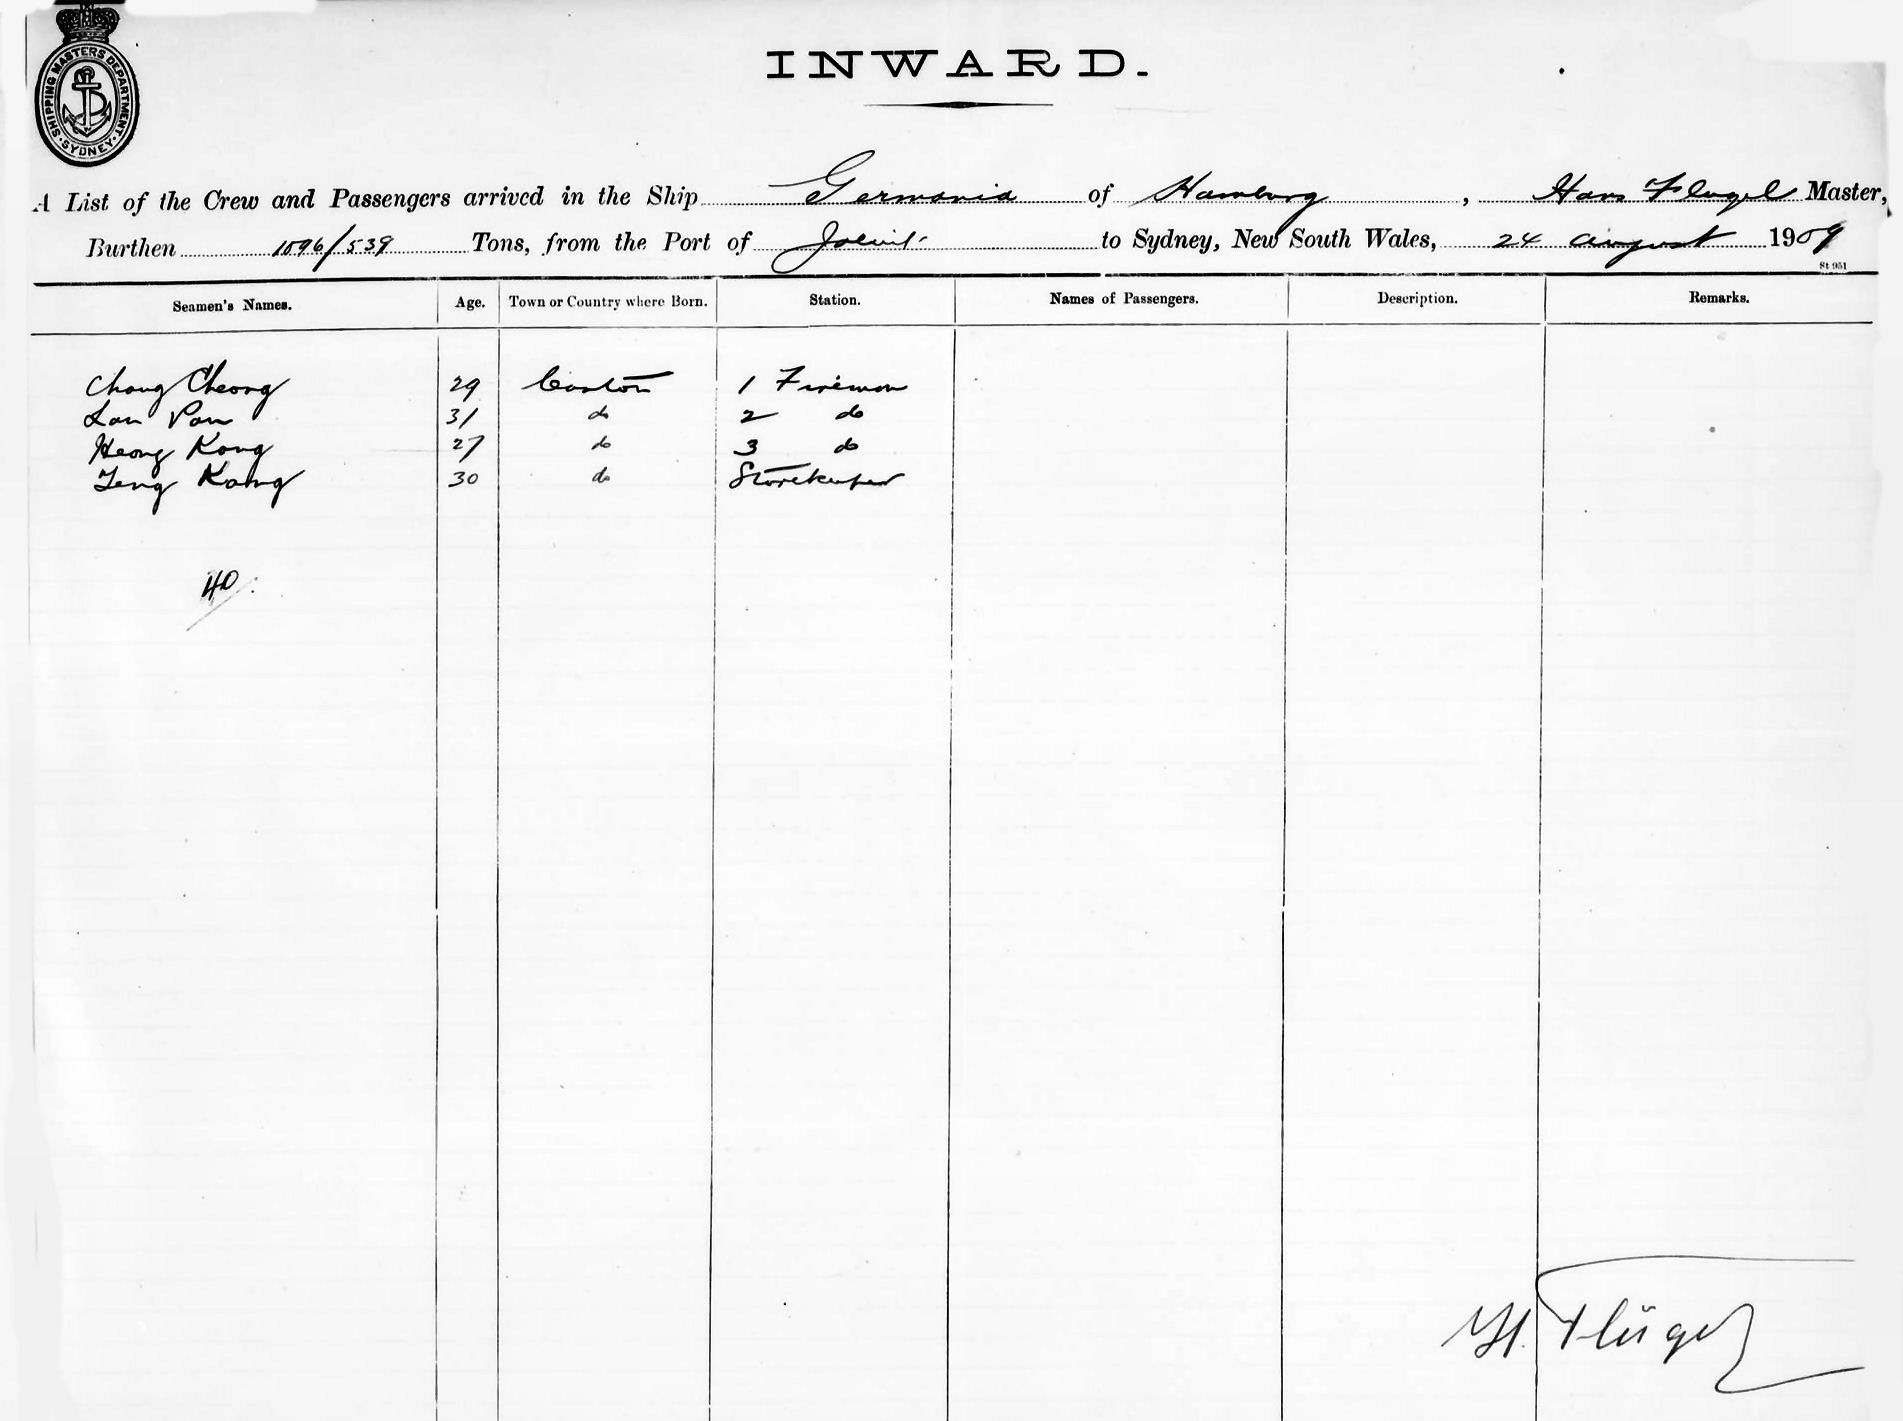 SHIPPING MASTERS DEPARTMENT. SYDNEY.
INWARD.
A List of the Crew and Passengers arrived in the Ship Germania of Hamburg, Hans Flugel Master,
Burthen 1096/539 Tons, from the Port of Jaluit to Sydney, New South Wales, 24 August 1909
St 951
Seamen's Names. Age. Town or Country where Born. Station. Names of Passengers. Description. Remarks.
Chong Cheong 29 Canton 1 Fireman
Lan Pan 31 do 2 do
Heong Kong 27 do 3 do
Kong 30 do Storekeeper
40
H. Flügel